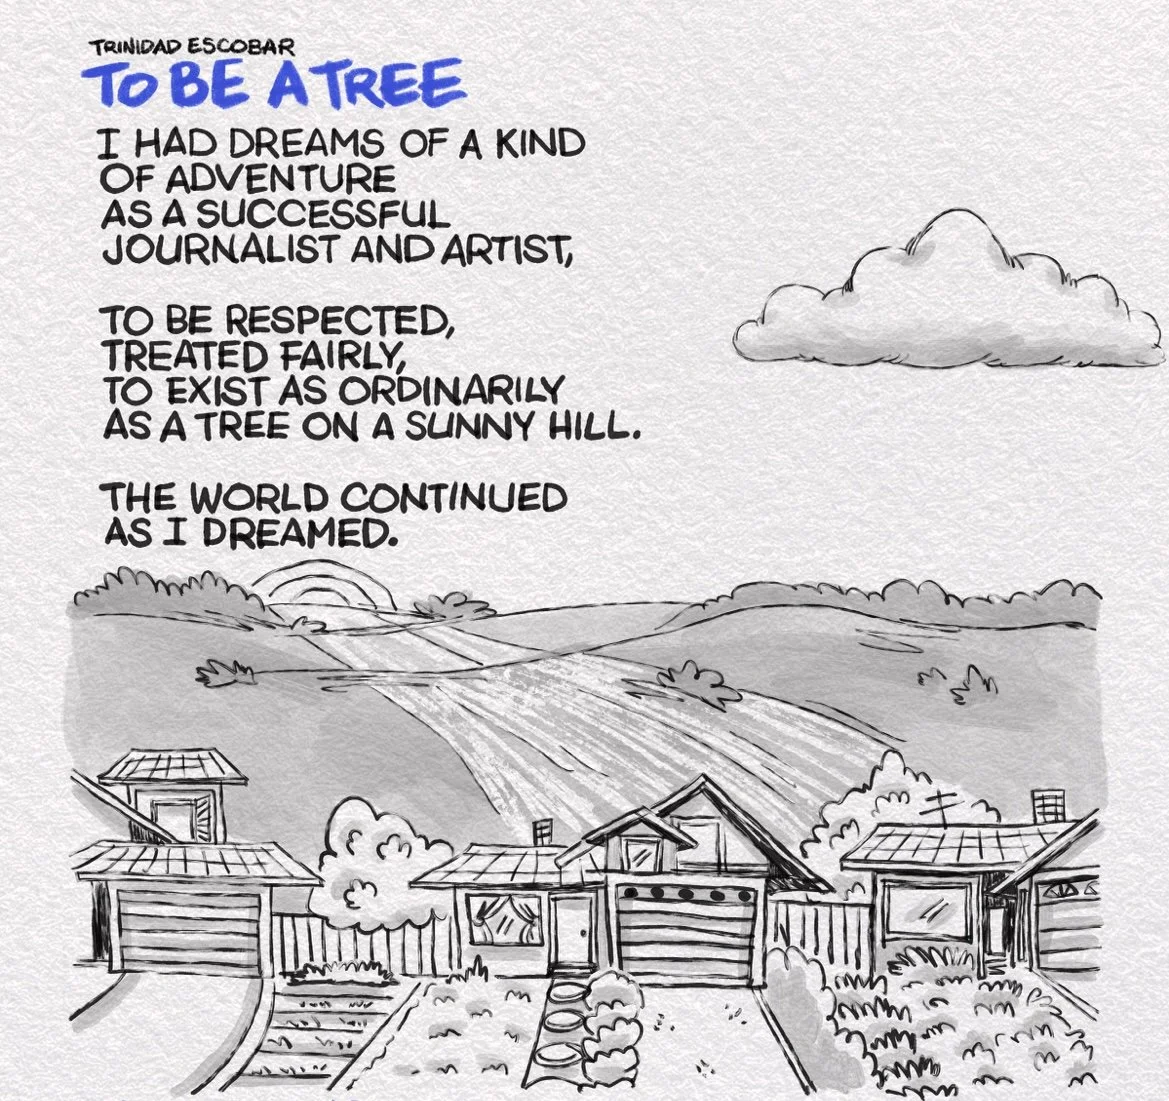 TRINIDAD ESCOBAR
TO BE A TREE
I HAD DREAMS OF A KIND
OF ADVENTURE
AS A SUCCESSFUL
JOURNALIST AND ARTIST,
TO BE RESPECTED,
TREATED FAIRLY,
TO EXIST AS ORDINARILY
AS A TREE ON A SUNNY HILL.
THE WORLD CONTINUED
AS I DREAMED.